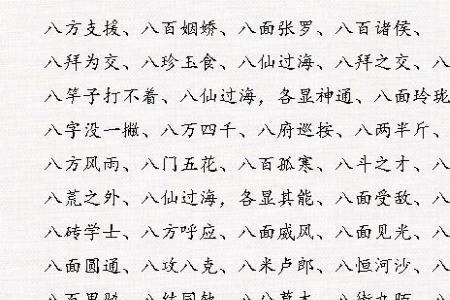 八方支援、八百姻娇、八面张罗、八百诸侯、
八拜为交、八珍玉食、八仙过海、八拜之交、八
八竿子打不着、八仙过海，各显神通、八面玲珑
八字没一撇、八万四千、八府巡按、八两半斤、
八方风雨、八门五花、八百孤寒、八斗之才、八
八荒之外、八仙过海，各显其能、八面受敌、八
八砖学士、八方呼应、八面威风、八面见光、八
八面圆通、八攻八克、八米卢郎、八恒河沙、八